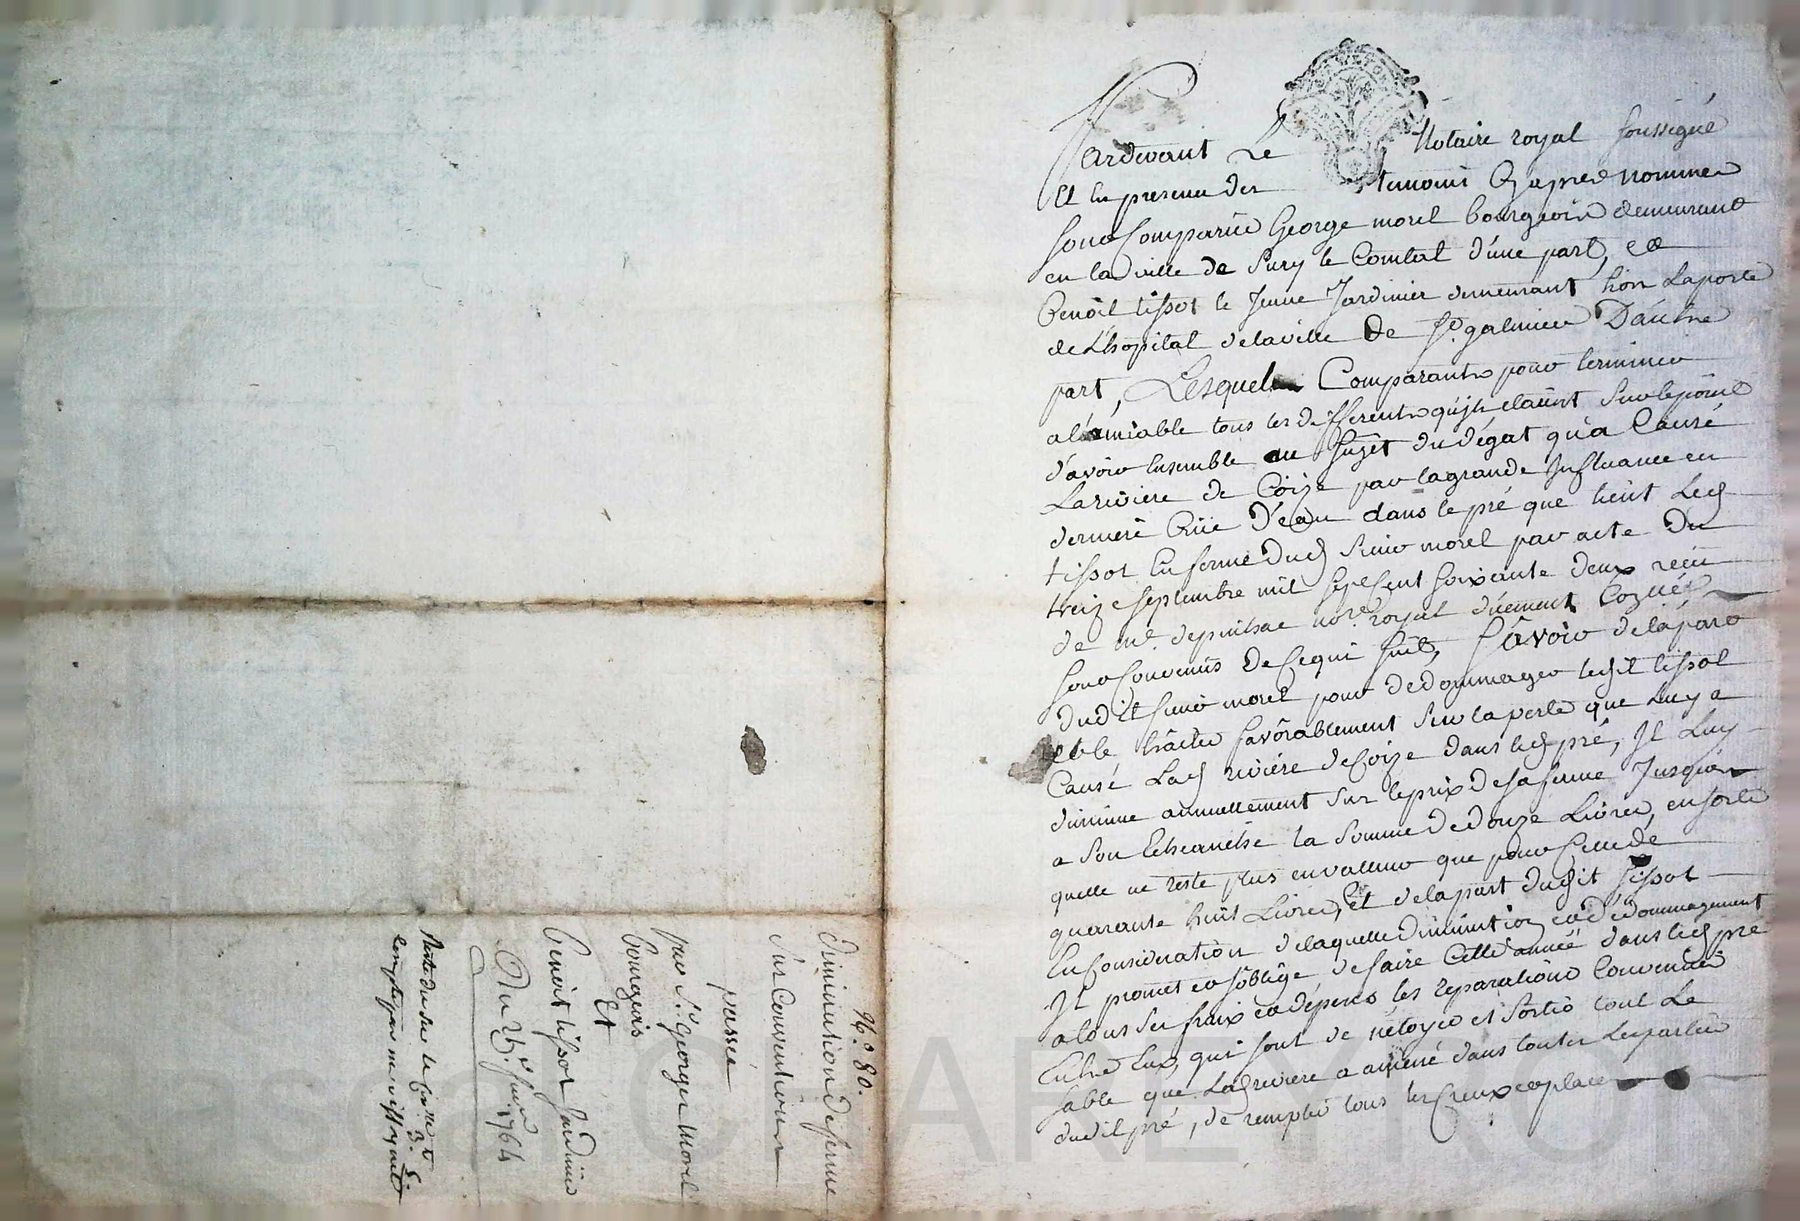 Pardevant Le Notaire royal soussigné
Et En presence des temoins Cy apres nommes
sont Comparus George morel bourgeois demeurant
en la ville de Sury le Comtal d'une part, et
Benoit tissot le Jeune Jardinier demeurant hors Laporte
de L'hopital delaville de St. galmier D'autre
part, Lesquels Comparants pour terminer
a l'amiable tous les differents qu'ils etaient sur le point
d'avoir Ensemble au sujet du dégat qu'a Causé
La riviere de Coize par la grande Influance en
derniere Crüe D'eau dans le pré que tient Led
tissot En ferme dud sieur morel par acte Du
treize septembre mil sept Cent soixante deux reçu
de me. depuihac nore. royal düement
sont Convenus De Ce qui suit, sçâvoir de la part
dudit sieur morel pour dedommager ledit tissot
et le traiter favôrablement sur la perte que Luy a
Causé Lad riviére de Coize dans led pré, Il Luy
diminue annuellement sur le prix de sa ferme Jusques
a son Echeance la somme de douze Livres, en sorte
quelle ne reste plus en valleur que pour Celle de
quarante huit Livres, Et de la part dudit tissot
En Consideration de laquelle diminution et dédommagement
Il promet et s'oblige de faire Cette année dans led pré
a tous ses fraix et dépens les reparations Convenües
Entre Eux, qui sont de nétoyer et sortir tout Le
sable que Lad riviere a amené dans toutes Les parties
dudit pré, de remplir tous les Creux et places
No. 80.
diminution de ferme
sur Conventions
passée
par Sr. George morel
bourgeois
Et
Benoit tissot Jardinier
Du 25e. Juin 1764